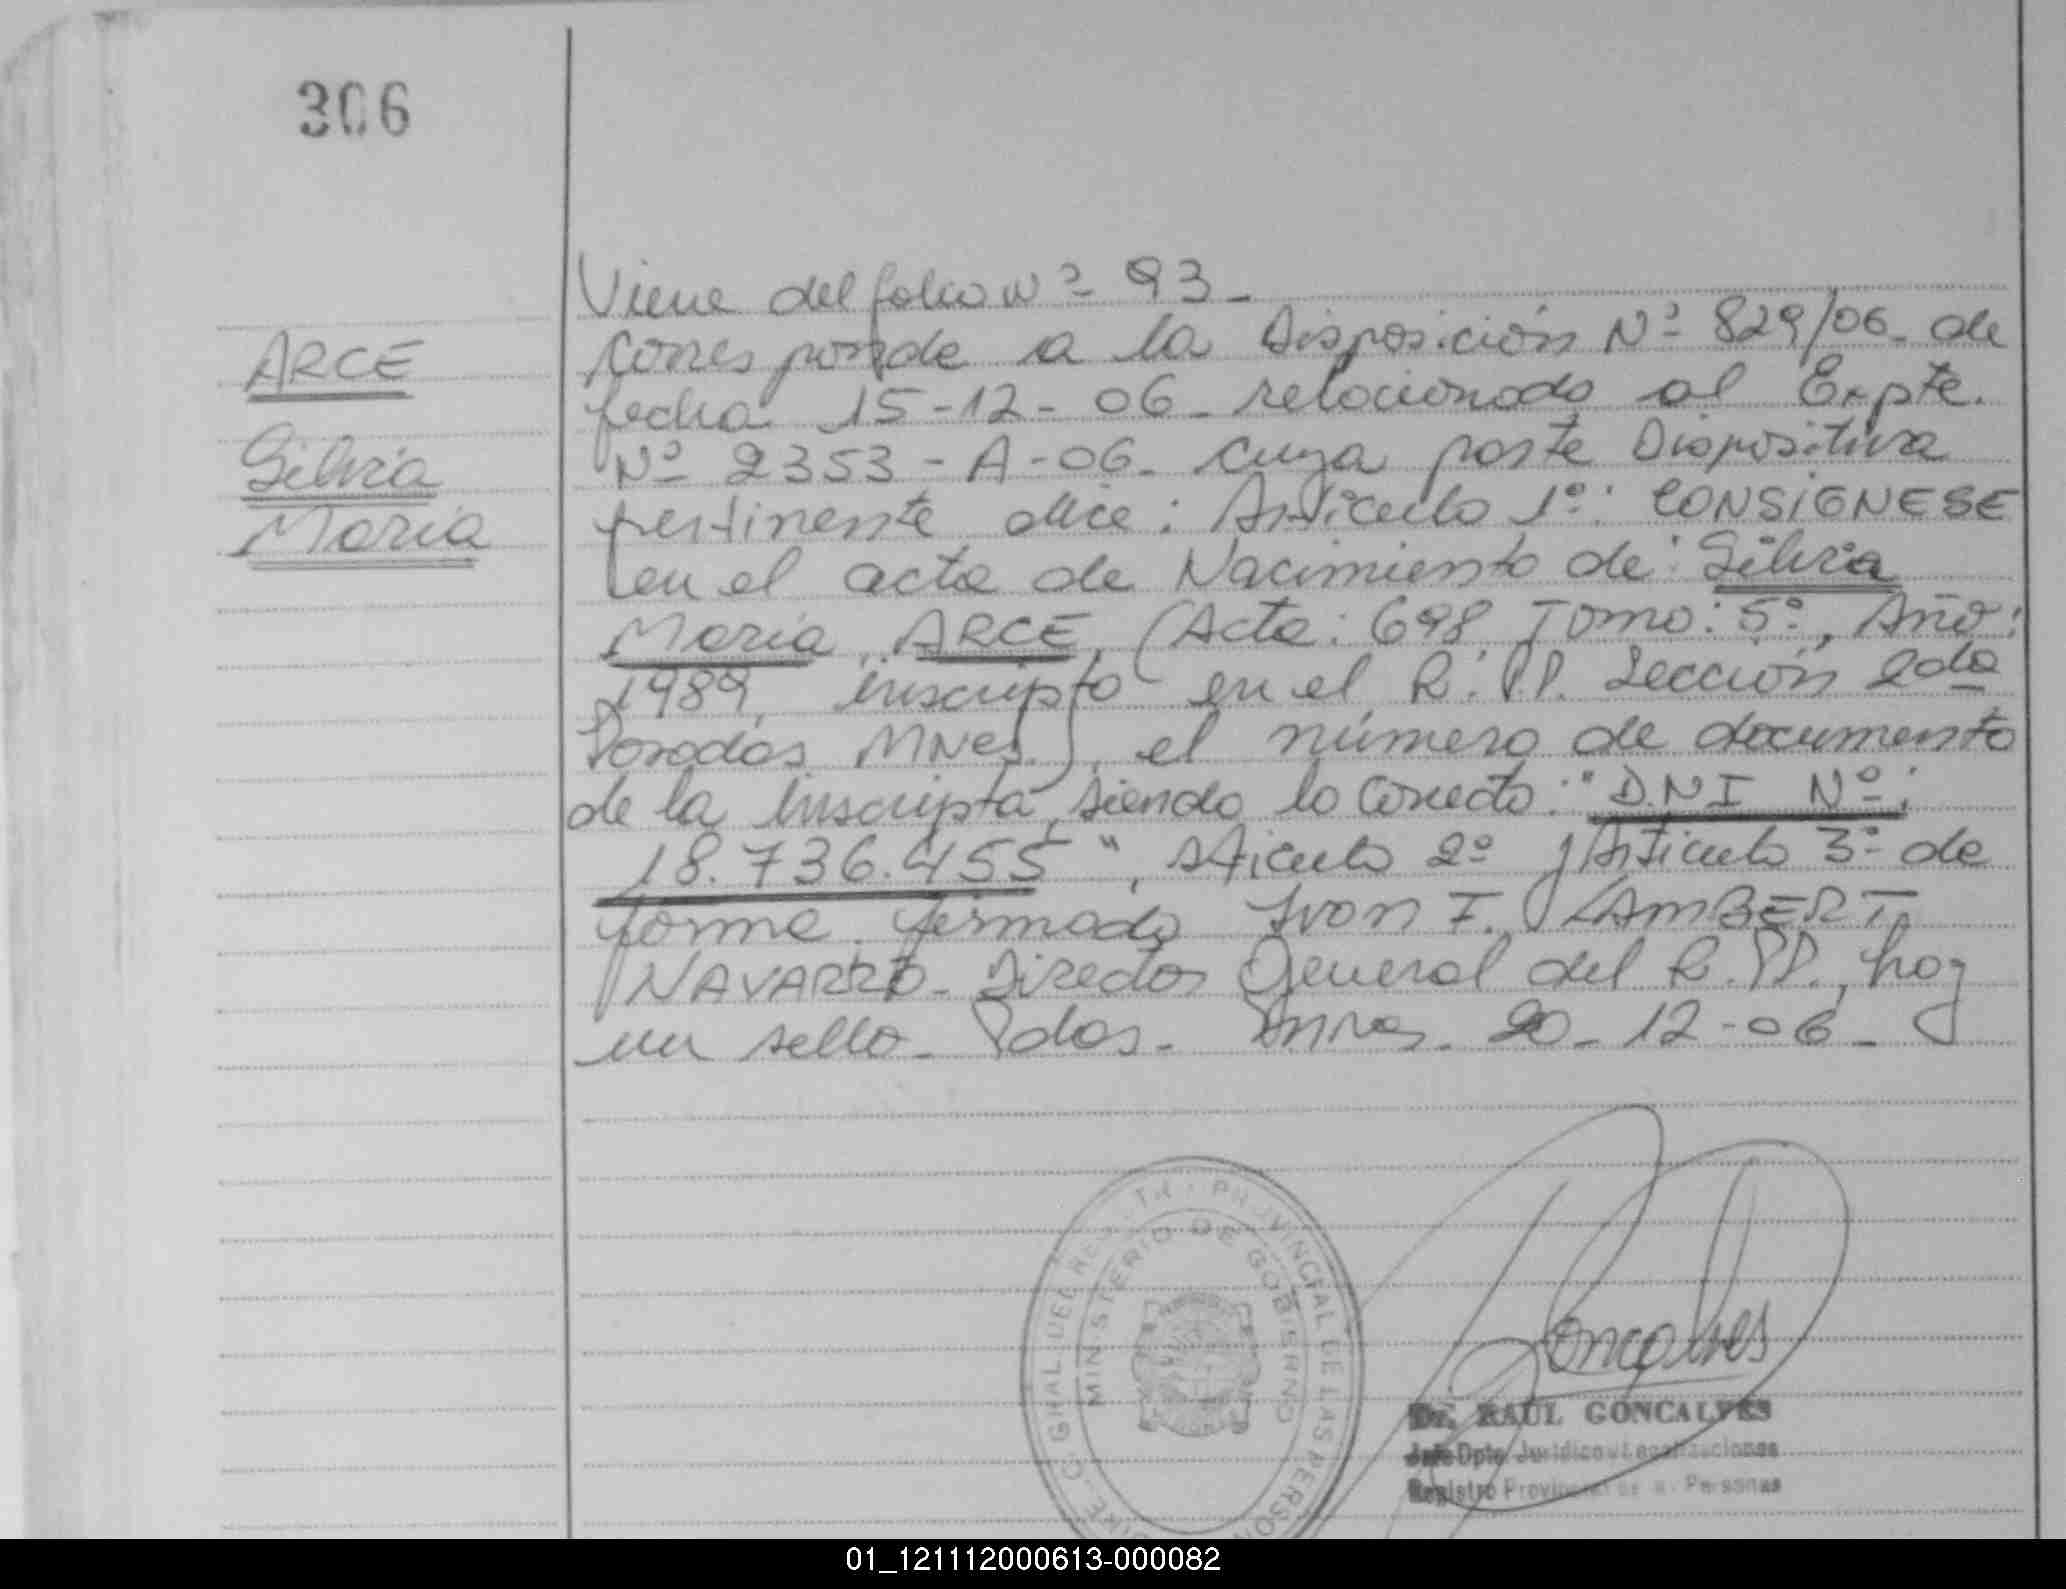 306
ARCE
Silvia
Maria
Viene del folio Nº 93-
Corresponde a la Disposición Nº 829/06- de
fecha 15-12-06- relacionado al Expte.
Nº 2353-A-06- cuya parte Dispositiva
pertinente dice: Articulo 1º: CONSIGNESE
en el acta de Nacimiento de: Silvia
Maria ARCE, (Acta: 698 Tomo: 5º, Año:
1989, inscripto en el R.PP. Sección 2da
Posadas Mnes.), el número de documento
de la inscripta, siendo lo correcto: "D.N.I Nº:
18.736.455", Articulo 2º y Articulo 3º de
forma firmado Ivan I. LAMBERT
NAVARRO- Director General del R.PP., hay
un sello- Pdas- Mnes- 20-12-06-
PROVINCIAL DE LAS PERSON
MINISTERIO DE GOBIERNO
Goncalves
Dr. RAUL GONCALVES
Jefe Dpto. Jurídico Legalizaciones
Registro Provincial de Personas
01_121112000613-000082